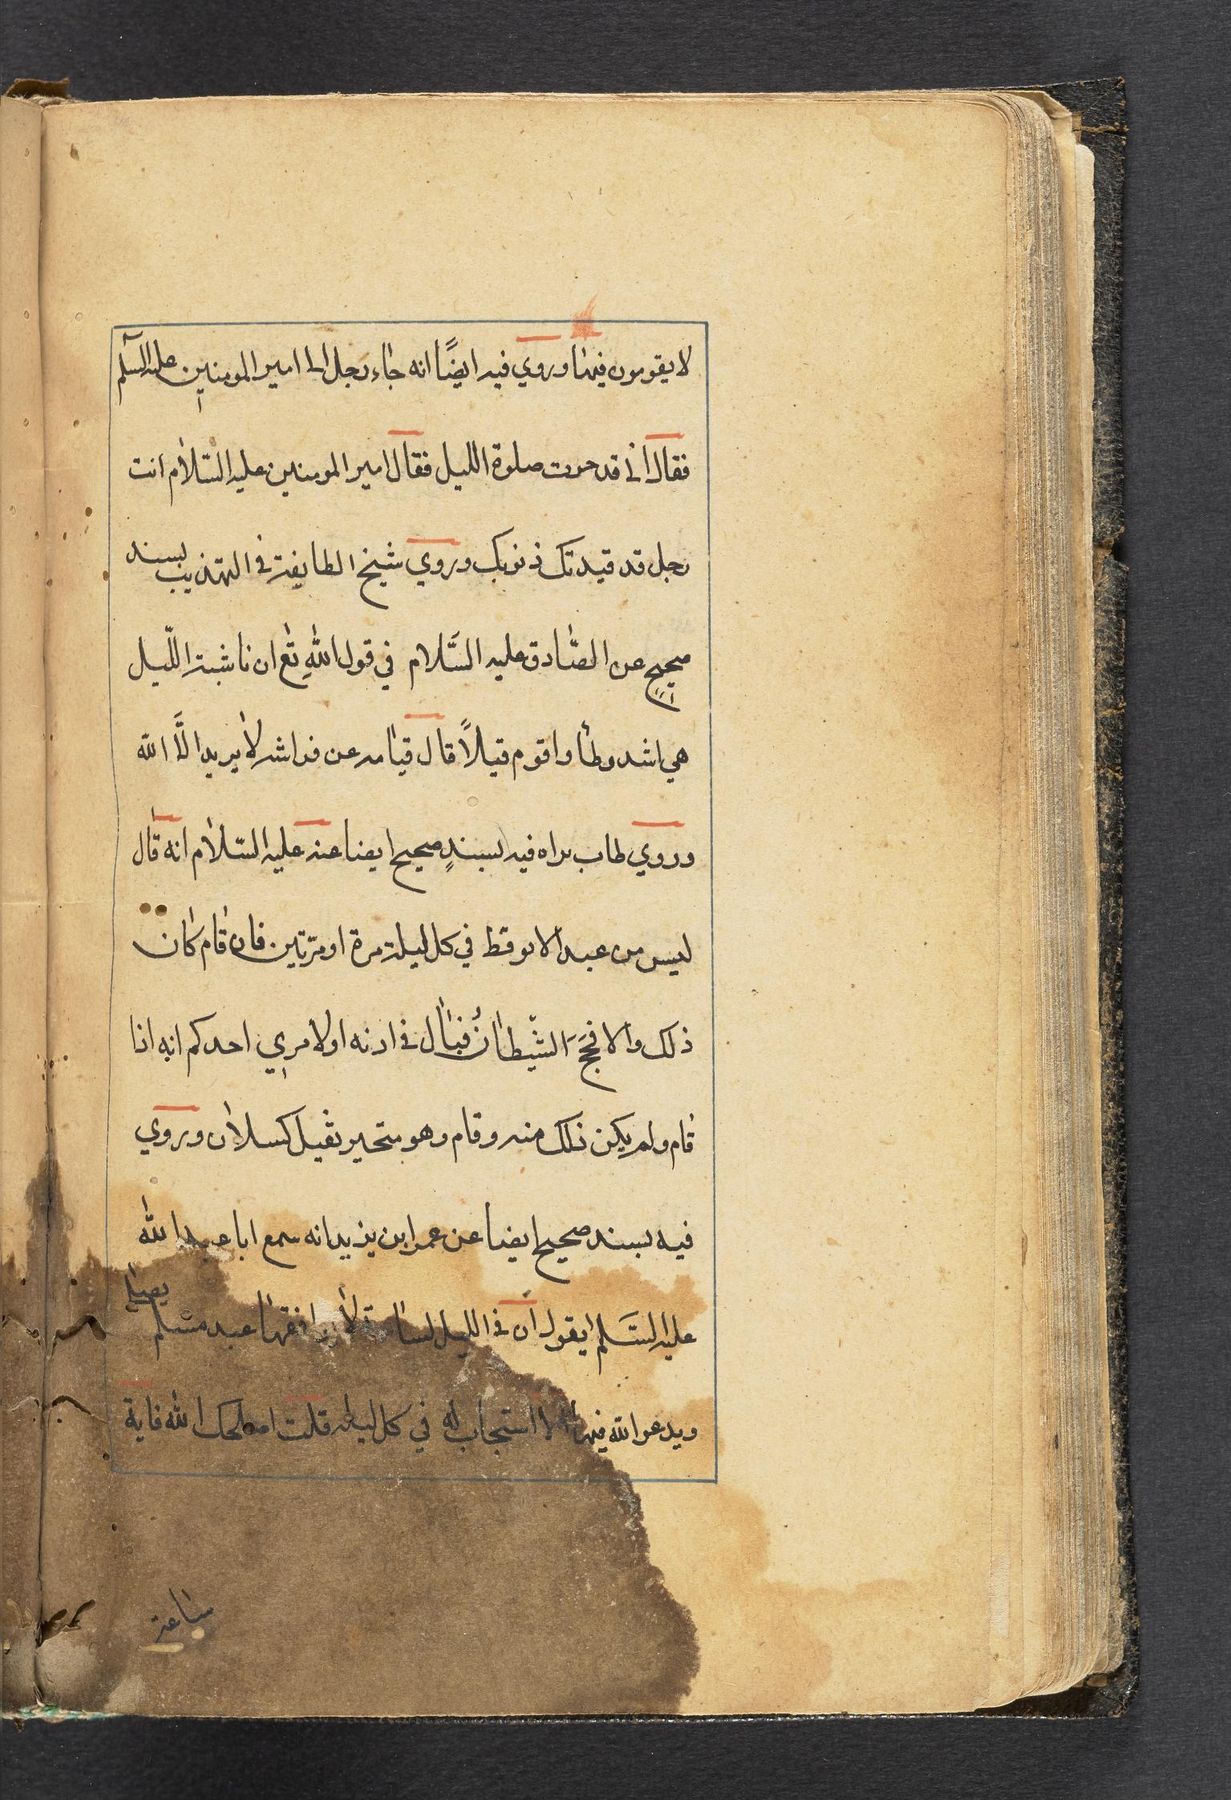 لا يقومون فيها وروي فيه ايضًا انه جاء رجل الى امير المومنين عليه السلم
فقال انى قد حرمت صلوة الليل فقال امير المومنين عليه السّلام انت
رجل قد قيدتك ذنوبك وروي شيخ الطايفة فى التهذيب بسند
صحيح عن الصّادق عليه السَّلام في قول اللهِ تع ان ناشئة اللّيل
هي اشد وطأ واقوم قيلاً قال قيامه عن فراشه لا يريد الَّا الله
وروي طاب ثراه فيه بسندٍ صحيح ايضا عنه عليه السّلام انه قال
ليس من عبد الا يوقظ في كل ليلة مرة او مرتين فان قام كان
ذلك والا فحجَ الشّيطانُ فبال فى اذنه اولا مري احدكم انه اذا
قام ولم يكن ذلك منه وقام وهو متحير ثقيل كسلان وروي
فيه بسند صحيح ايضا عن عمر ابن يزيد انه سمع ابا عبد الله
عليه السَّلم يقول ان فى الليل لساعة لا يوافقها عبد مسلم يصلى
ويدعو الله فيها الا استجاب له في كل ليلة قلت اصلحك الله فاية
ساعة